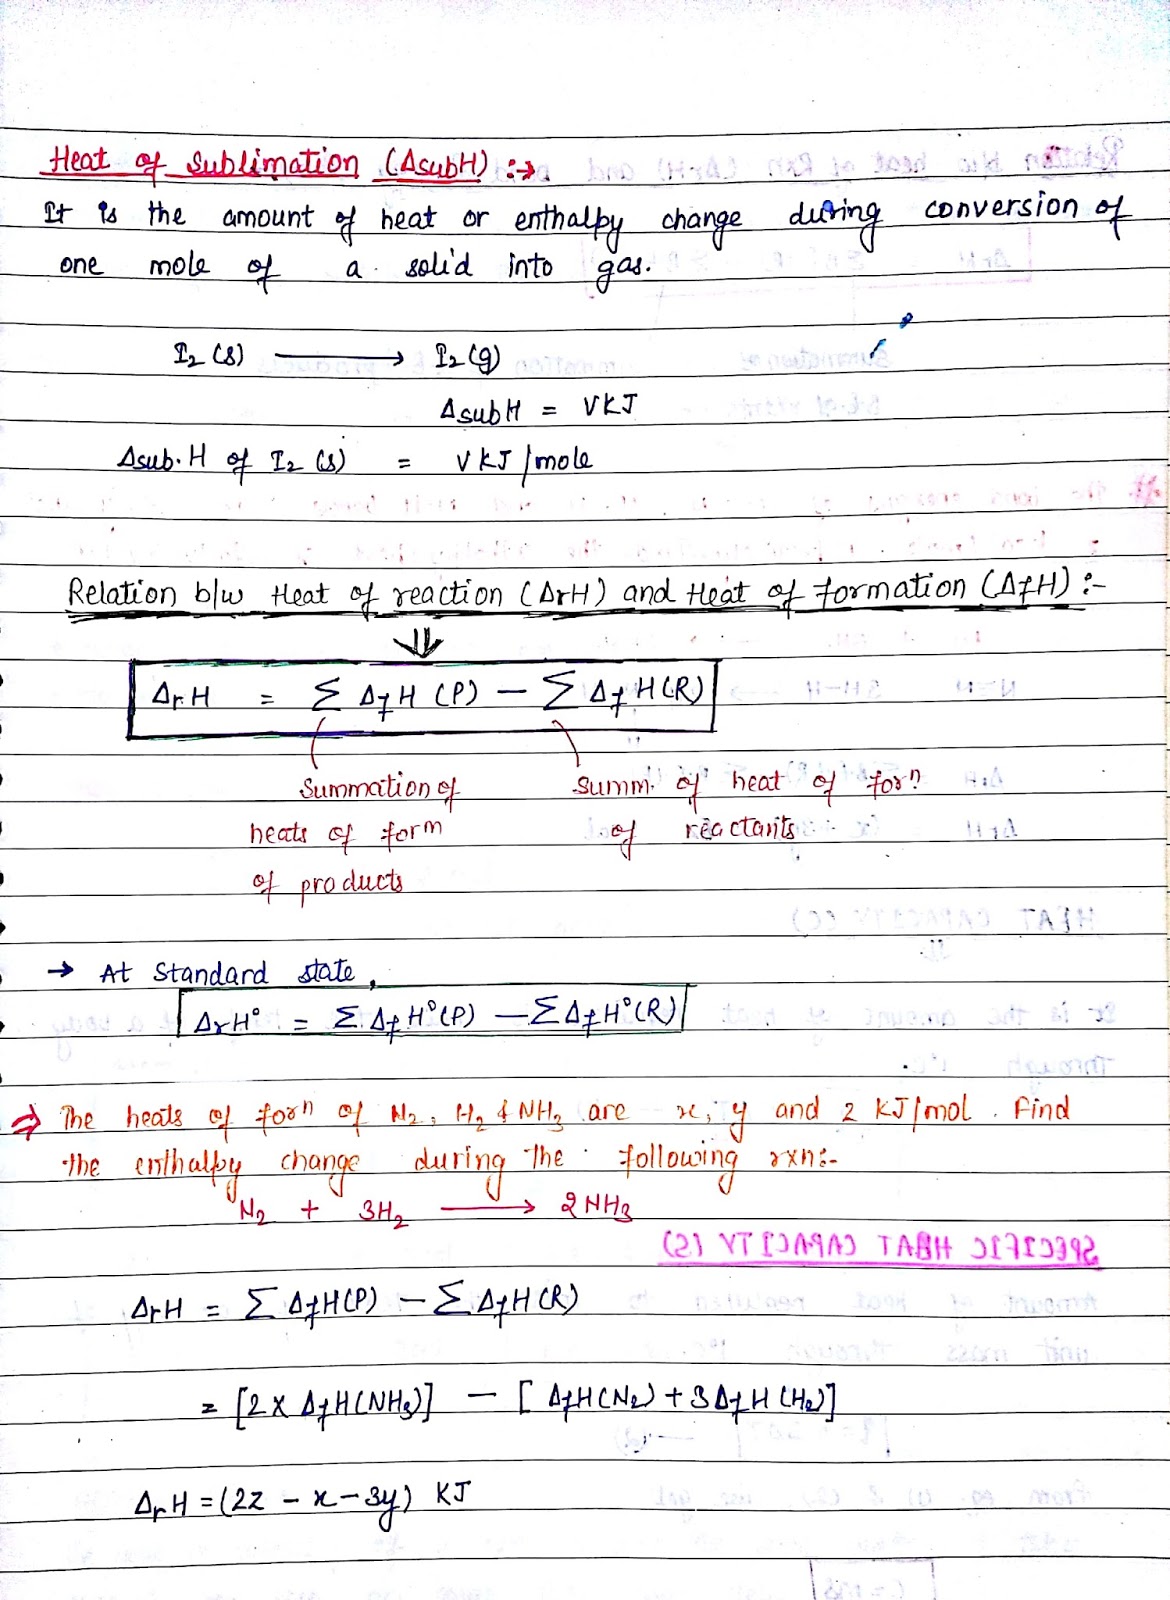 Heat of Sublimation (ΔsubH) :→
It is the amount of heat or enthalpy change during conversion of
one mole of a solid into gas.
I₂ (s) ⟶ I₂ (g)
ΔsubH = VKJ
Δsub.H of I₂ (s) = VKJ/mole
Relation b/w Heat of reaction (ΔrH) and Heat of formation (ΔfH) :-
⇓
ΔrH = Σ ΔfH (P) − Σ ΔfH(R)
Summation of heats of form of products
Summ. of heat of forⁿ of reactants
→ At Standard state,
ΔrH° = Σ ΔfH°(P) − Σ ΔfH°(R)
⇒ The heats of forⁿ of N₂, H₂ & NH₃ are x, y and z KJ/mol. Find
the enthalpy change during the following rxn:-
N₂ + 3H₂ ⟶ 2NH₃
SPECIFIC HEAT CAPACITY (S)
ΔrH = Σ ΔfH(P) − Σ ΔfH(R)
= [2 x ΔfH(NH₃)] − [ΔfH(N₂) + 3ΔfH(H₂)]
ΔrH = (2z − x − 3y) KJ